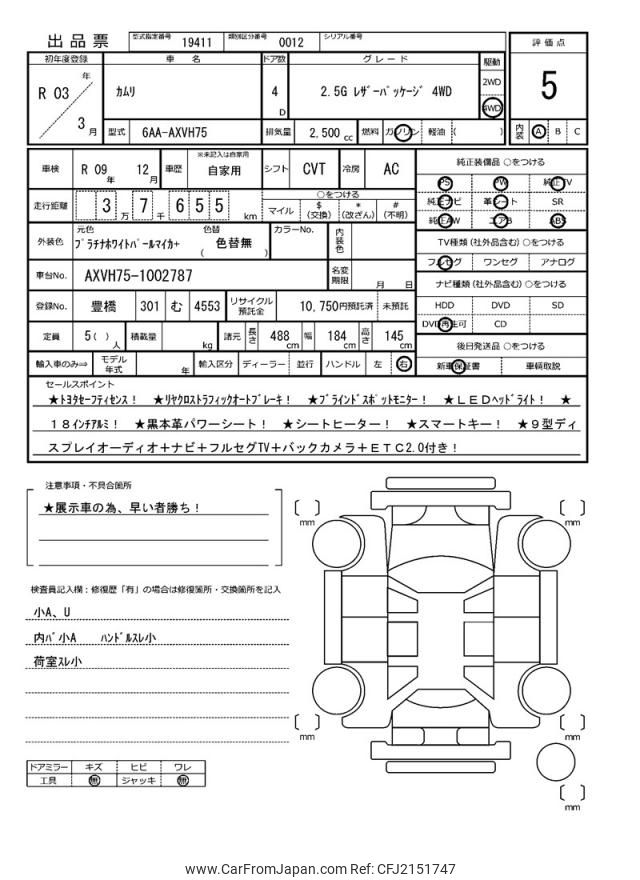 出品票 型式指定番号 19411 類別区分番号 0012 シリアル番号
評価点
5
内装 A B C
初年度登録 車名 ドア数 グレード 駆動
R 03 年 3 月 カムリ 4 D 2.5G ﾚｻﾞｰﾊﾟｯｹｰｼﾞ 4WD 2WD 4WD
型式 6AA-AXVH75 排気量 2,500 cc 燃料 ガソリン 軽油 ( )
車検 R 09 年 12 月 車歴 ※未記入は自家用 自家用 シフト CVT 冷房 AC
走行距離 3 万 7 千 6 5 5 km ○をつける
マイル $ (交換) * (改ざん) # (不明)
外装色 元色 ﾌﾟﾗﾁﾅﾎﾜｲﾄﾊﾟｰﾙﾏｲｶ+ 色替 ( 色替無 ) カラーNo. 内装色
車台No. AXVH75-1002787 名変期限 月 日
登録No. 豊橋 301 む 4553 リサイクル預託金 10,750円預託済 未預託
定員 5 ( ) 人 積載量 kg 諸元 長さ 488 cm 幅 184 cm 高さ 145 cm
輸入車のみ⇒ モデル年式 年 輸入区分 ディーラー 並行 ハンドル 左 右
純正装備品 ○をつける
PS PW 純正TV
純正ナビ 革シート SR
純正AW エアB ABS
TV種類 (社外品含む) ○をつける
フルセグ ワンセグ アナログ
ナビ種類 (社外品含む) ○をつける
HDD DVD SD
DVD再生可 CD
後日発送品 ○をつける
新車保証書 車輌取説
セールスポイント
★ﾄﾖﾀｾｰﾌﾃｨｾﾝｽ！ ★ﾘﾔｸﾛｽﾄﾗﾌｨｯｸｵｰﾄﾌﾞﾚｰｷ！ ★ﾌﾞﾗｲﾝﾄﾞｽﾎﾟｯﾄﾓﾆﾀｰ！ ★ＬＥＤﾍｯﾄﾞﾗｲﾄ！ ★
１８ｲﾝﾁｱﾙﾐ！ ★黒本革パワーシート！ ★シートヒーター！ ★スマートキー！ ★９型ディ
スプレイオーディオ＋ナビ＋フルセグTV＋バックカメラ＋ＥＴＣ2.0付き！
注意事項・不具合箇所
★展示車の為、早い者勝ち！
検査員記入欄：修復歴「有」の場合は修復箇所・交換箇所を記入
小A、U
内ﾊﾞ小A ﾊﾝﾄﾞﾙｽﾚ小
荷室ｽﾚ小
ドアミラー キズ ヒビ ワレ
工具 無 ジャッキ 無
[ ] mm [ ] mm
[ ] mm [ ] mm
[ ] mm
www.CarFromJapan.com Ref: CFJ2151747